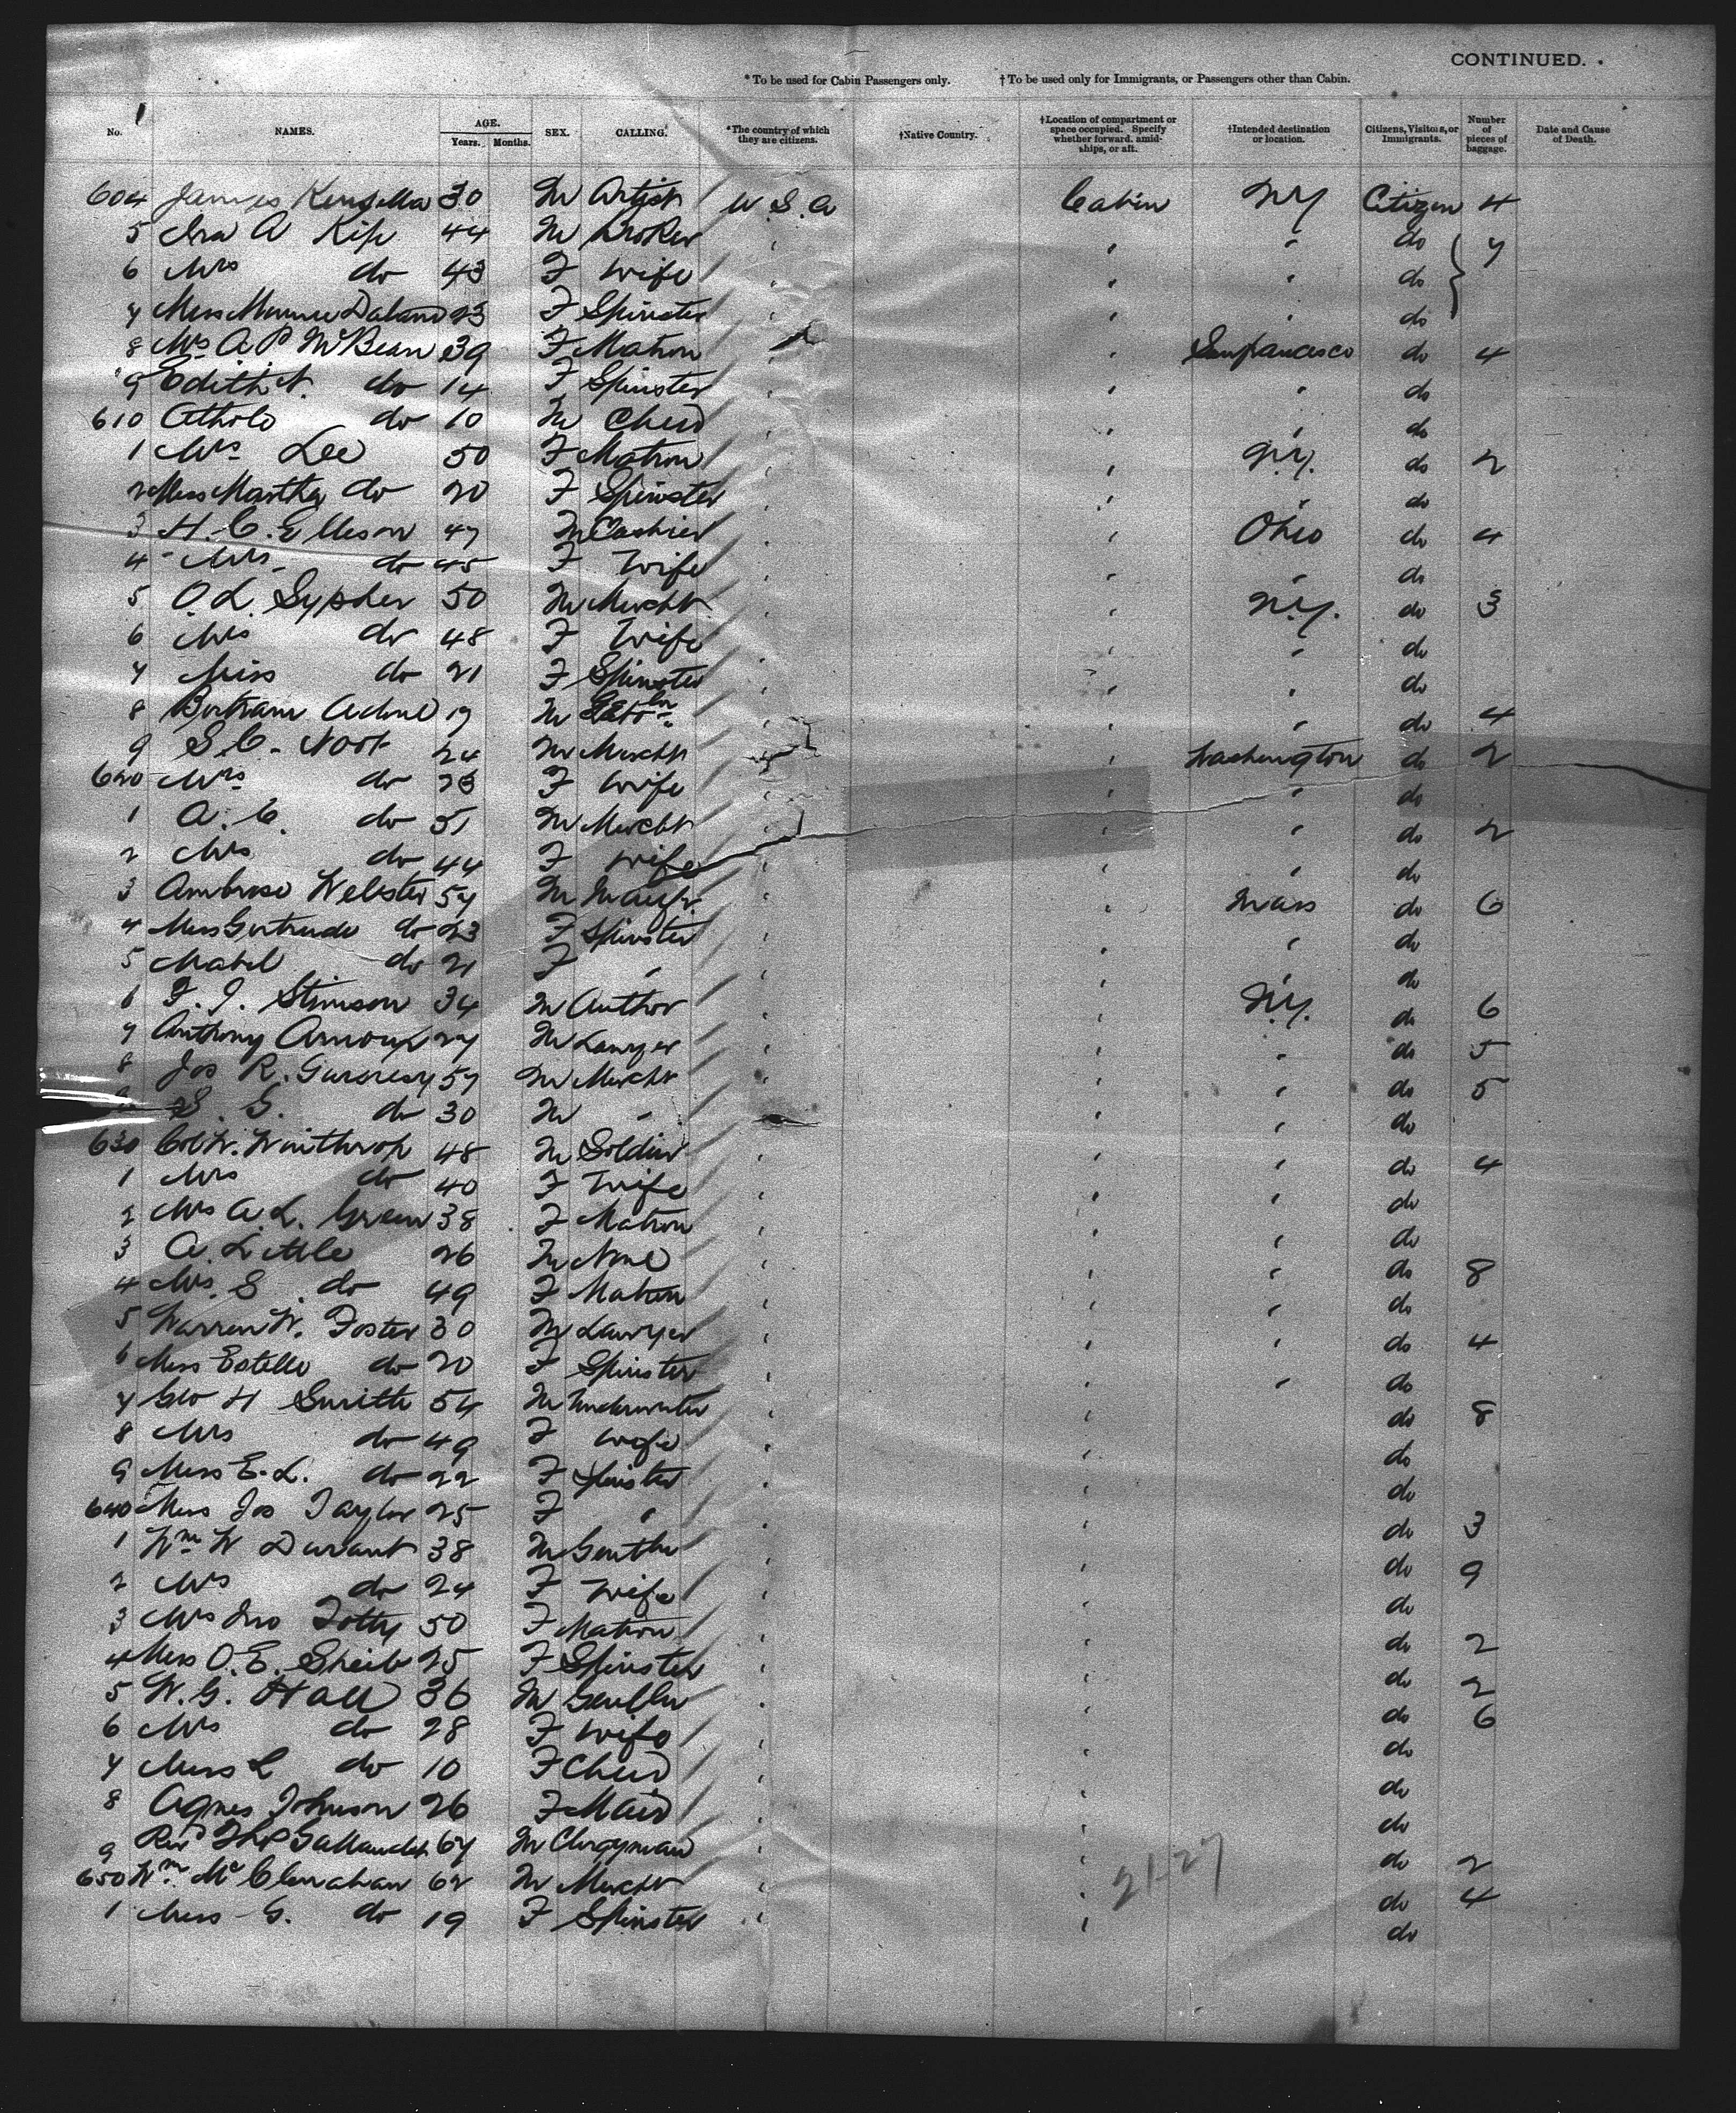 CONTINUED.
* To be used for Cabin Passengers only. † To be used only for Immigrants, or Passengers other than Cabin.
No. NAMES. AGE. Years. Months. SEX. CALLING. *The country of which they are citizens. †Native Country. †Location of compartment or space occupied. Specify whether forward, amidships, or aft. †Intended destination or location. Citizens, Visitors, or Immigrants. Number of pieces of baggage. Date and Cause of Death.
604 James Kinsella 30 M Artist U.S.A Cabin NY Citizen 4
5 Ira A Kip 44 M Broker " " " do 7
6 Mrs do 43 F Wife " " " do
7 Miss Daland 23 F Spinster " " " do
8 Mrs A P McBean 39 F Matron " " Sanfrancisco do 4
9 Edith A. do 14 F Spinster " " " do
610 Athole do 10 M Child " " " do
1 Mrs Lee 50 F Matron " " N.Y. do 2
2 Miss Martha do 20 F Spinster " " " do
3 H. C. Elleson 47 M Cashier " " Ohio do 4
4 Mrs do 45 F Wife " " " do
5 O. L. Sypher 50 M Mercht " " N.Y. do 3
6 Mrs do 48 F Wife " " " do
7 Miss do 21 F Spinster " " " do
8 Bertram 19 M " " " do 4
9 S. C. 24 M Mercht " " Washington do 2
620 Mrs do 23 F Wife " " " do
1 A. C. do 51 M Mercht " " " do 2
2 Mrs do 44 F Wife " " " do
3 Ambrose Webster 57 M Manfr. " " Mass do 6
4 Miss Gertrude do 23 F Spinster " " " do
5 Mabel do 21 F " " " " do
6 F. J. Stimson 34 M Author " " N.Y. do 6
7 Anthony 27 M Lawyer " " " do 5
8 Jos R. Guernsey 57 M Mercht " " " do 5
S. G. do 30 M " " " " do
630 Col W. Winthrop 48 M Soldier " " " do 4
1 Mrs do 40 F Wife " " " do
2 Mrs A. L. Green 38 F Matron " " " do
3 A. Little 26 M None " " " do 8
4 Mrs. S do 49 F Matron " " " do
5 Warren W. Foster 30 M Lawyer " " " do 4
6 Miss Estelle do 20 F Spinster " " " do
7 Geo H Smith 54 M Underwriter " " do 8
8 Mrs do 49 F Wife " " do
9 Miss E. L. do 22 F Spinster " " do
640 Miss Jos Taylor 25 F " " " do 3
1 Wm W Durant 38 M Gentln " " do 9
2 Mrs do 24 F Wife " " do
3 Mrs Jno Totty 50 F Matron " " do 2
4 Miss O. E. Sheib 25 F Spinster " " do 2
5 W. G. Hall 36 M Gentln " " do 6
6 Mrs do 28 F Wife " " do
7 Miss L do 10 F Child " " do
8 Agnes Johnson 26 F Maid " " do
9 Revd Thos Gallaudet 67 M Clergyman " " do 2
650 Wm McClenahan 62 M Mercht " " do 4
1 Miss G. do 19 F Spinster " " do
21-27